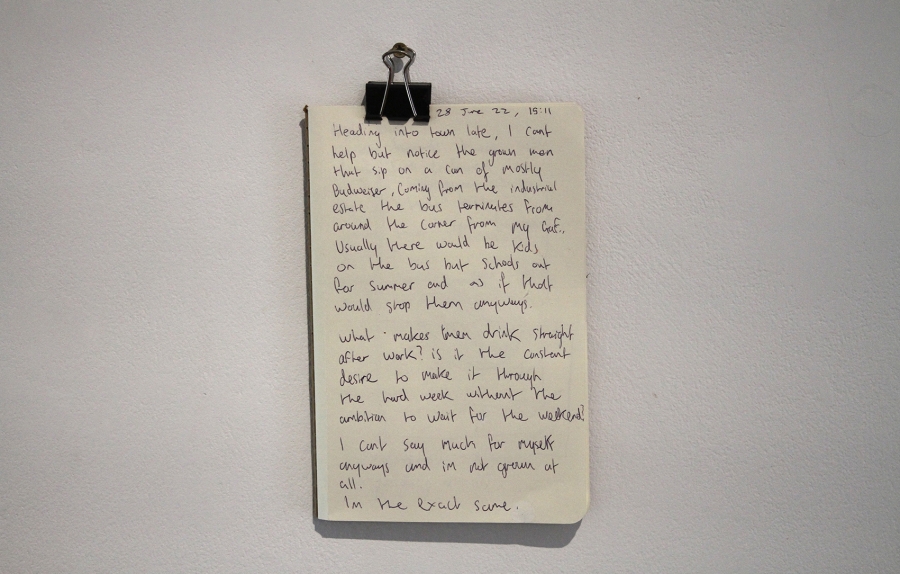 28 June 22, 15:11
Heading into town late, I cant
help but notice the grown men
that sip on a can of mostly
Budweiser, Coming from the industrial
estate the bus terminates from
around the corner from my gaf.
Usually there would be kids
on the bus but schools out
for summer and as if that
would stop them anyways.
what makes them drink straight
after work? is it the constant
desire to make it through
the hard week without the
ambition to wait for the weekend?
I cant say much for myself
anyways and im not grown at
all.
Im the exact same.